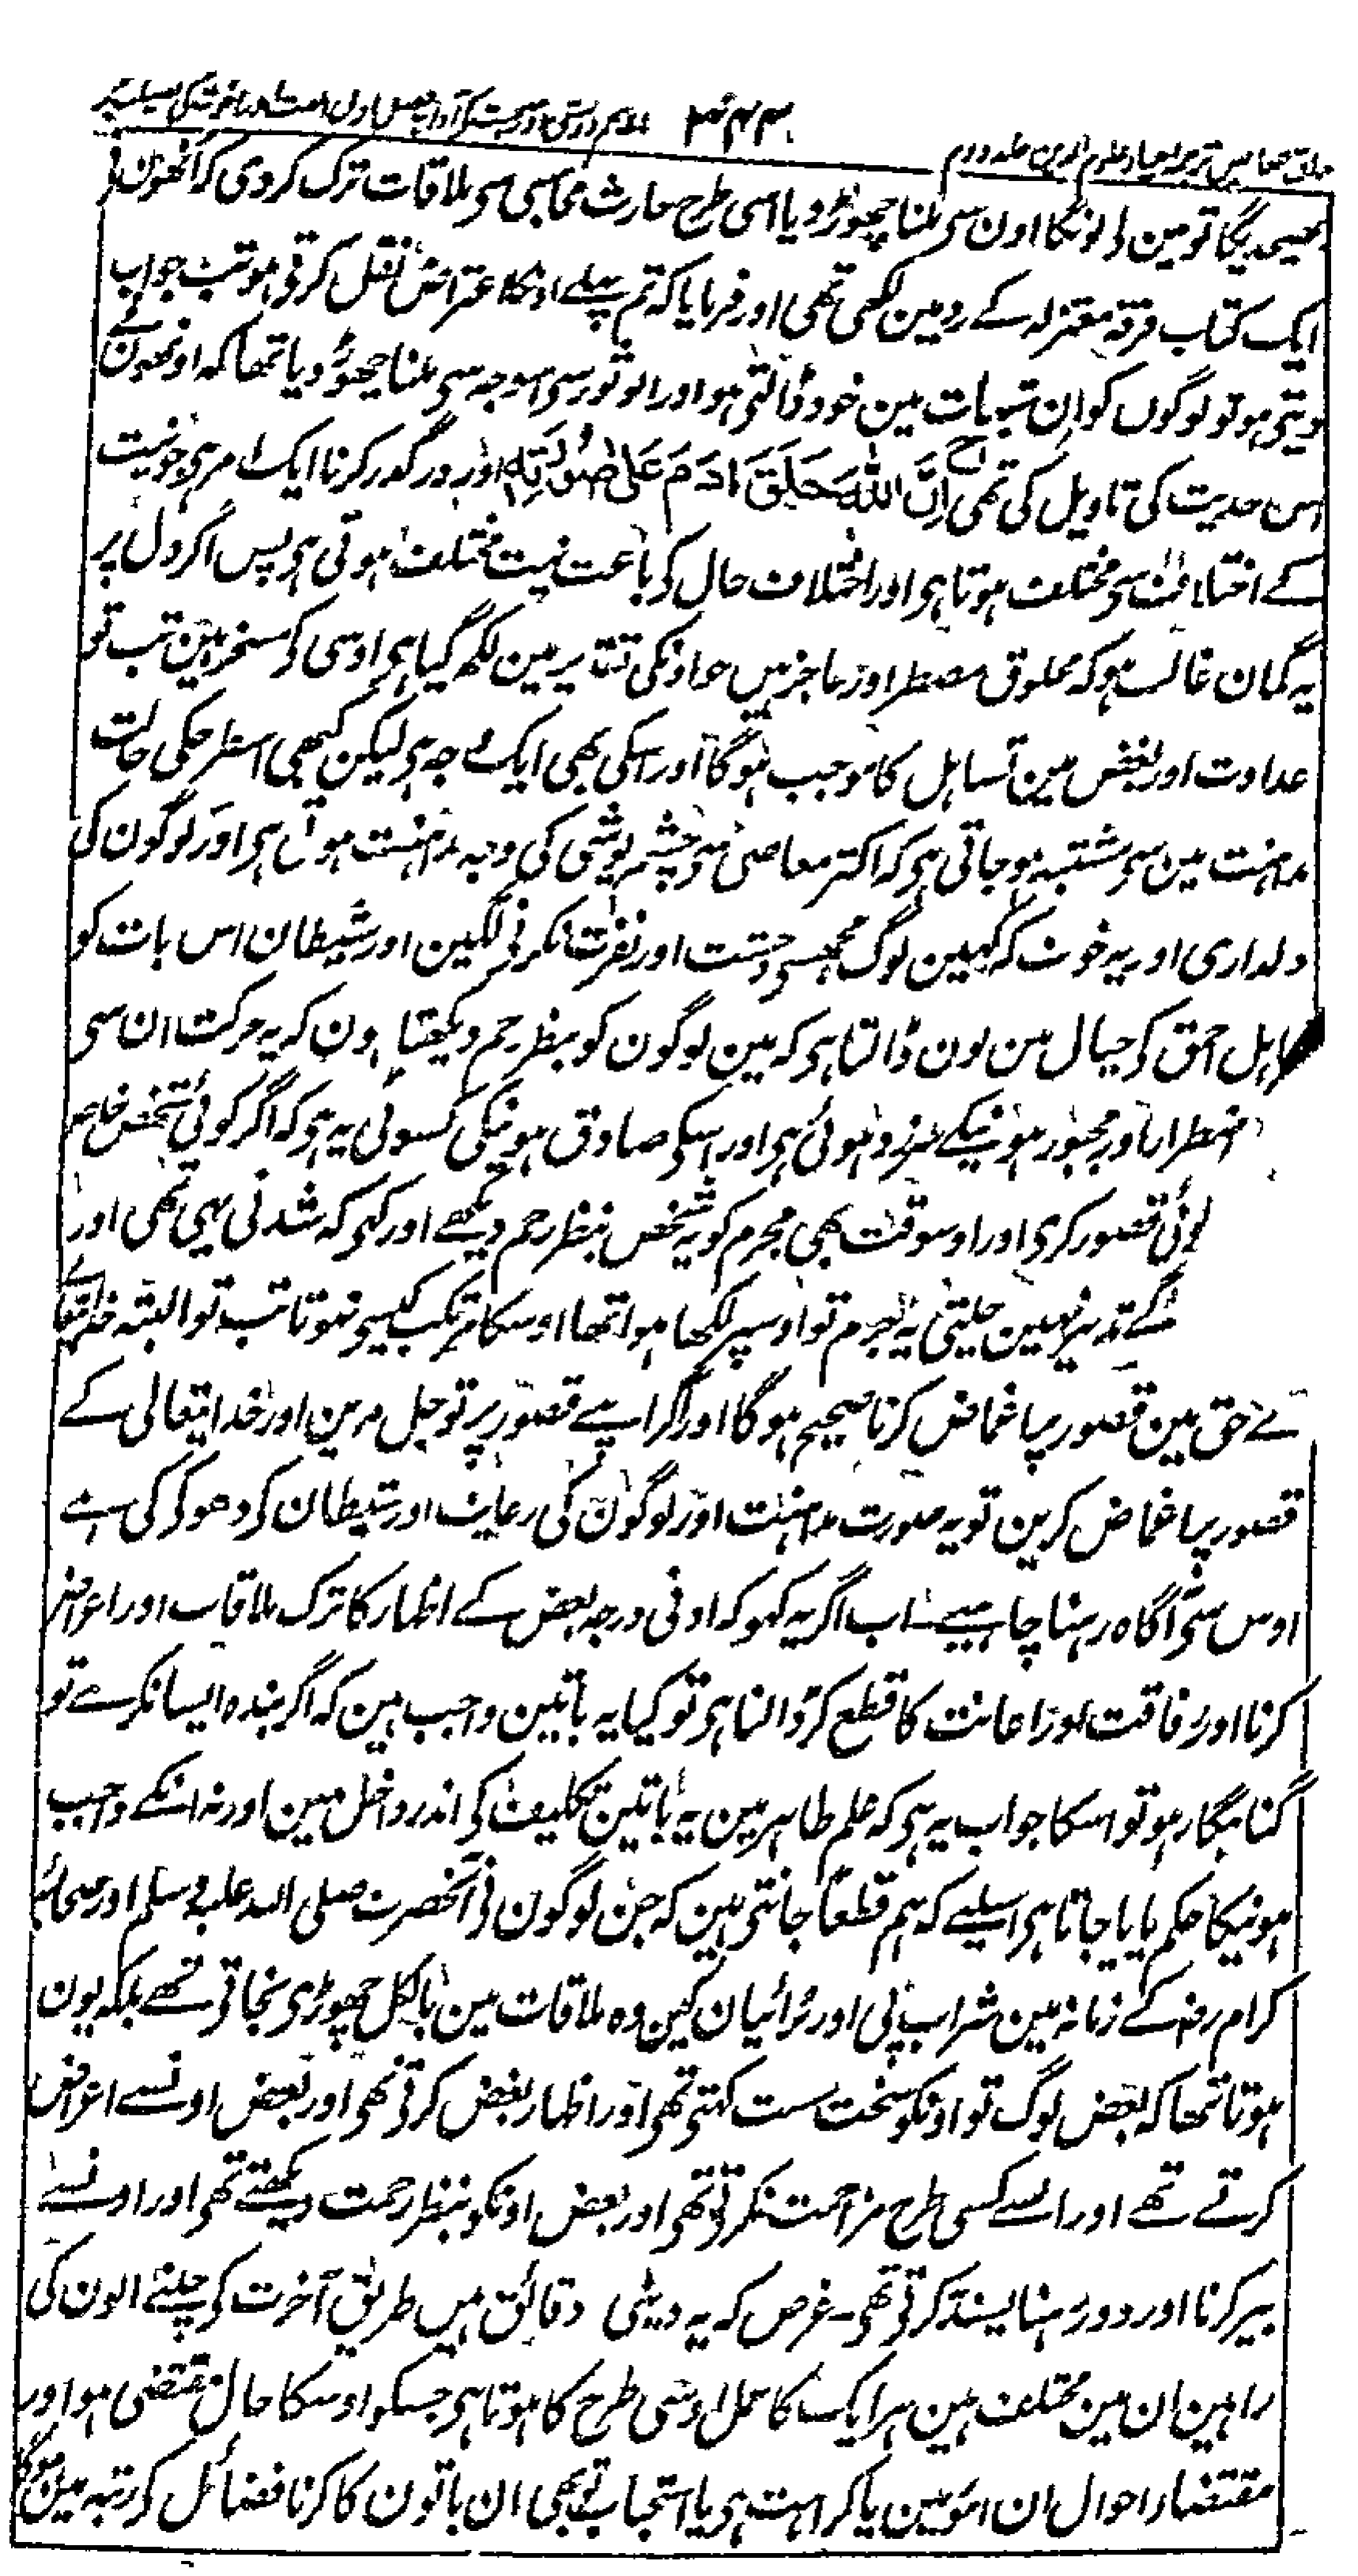 مذاق العارفین ترجمہ احیاء علوم الدین جلد دوم
بھیجدیگا تو مین لے لونگا اون سی ملنا چھوڑ دیا اسی طرح حارث محاسبی سی ملاقات ترک کردی کہ انھون نی
ایک کتاب فرقہ معتزلہ کے رد مین لکھی تھی اور فرمایا کہ تم پہلے اونکا اعتراض نقل کرتی ہو تب جواب
دیتی ہو تو لوگوں کو ان شبہات مین خود ڈالتی ہو اور ابو ثور سی اسوجہ سی ملنا چھوڑ دیا تھا کہ اونھون نے
اس حدیث کی تاویل کی تھی اِنَّ اللّٰہَ خَلَقَ اٰدَمَ عَلٰی صُوْرَتِہٖ اور درگذر کرنا ایک امر ہی جو نیت
کے اختلاف سی مختلف ہوتا ہی اور اختلاف حال کی باعث نیت مختلف ہوتی ہی پس اگر دل پر
یہ گمان غالب ہو کہ مخلوق مضطر اور عاجز ہیں جو اونکی تقدیر مین لکھ گیا ہی اوسی کی مسخر ہین تب تو
عداوت اور بغض مین تساہل کا موجب ہوگا اور اسکی بھی ایک وجہ ہی لیکن کبھی اسطرحکی حالت
مداہنت مین سی مشتبہ ہو جاتی ہی کہ اکثر معاصی سی چشم پوشی کی وجہ مداہنت ہوتی ہی اور لوگون کی
دلداری اور یہ خوف کہ کہین لوگ مجھسی وحشت اور نفرت نکرنی لگین اور شیطان اس بات کو
اہل احمق کی خیال مین یون ڈالتا ہی کہ مین لوگون کو بنظر رحم دیکھتا ہون کہ یہ حرکت ان سی
اضطرار اور مجبور ہونیکے سرزد ہوئی ہی اور اسکی صادق ہونیکی کسوٹی یہ ہی کہ اگر کوئی شخص خاص
کوئی قصور کری اور اوسوقت بھی مجرم کو یہ شخص بنظر رحم دیکھے اور کہی کہ شدنی یہی تھی اور
کے تدبیر نہین چلتی یہ مجرم تو اوسپر لکھا ہوا تھا اوسکا مرتکب کیسی نہوتا تب تو البتہ خدا یتعالی
کے حق مین قصور پر اغماض کرنا صحیح ہوگا اور اگر اپنے قصور پر تو جل مرین اور خدا یتعالی کے
قصور پر اغماض کرین تو یہ صورت مداہنت اور لوگون کی رعایت اور شیطان کی دھوکی کی ہے
اوس سی آگاہ رہنا چاہیے۔ اب اگر یہ کہو کہ ادنی درجہ بغض کے اظہار کا ترک ملاقات اور اعراض
کرنا اور رفاقت اور اعانت کا قطع کر ڈالنا ہی تو کیا یہ باتین واجب ہین کہ اگر بندہ ایسا نکرے تو
گناہگار ہو تو اسکا جواب یہ ہی کہ علم ظاہر مین یہ باتین تکلیف کی اندر داخل ہین اور نہ انکے واجب
ہونیکا حکم پایا جاتا ہی اسلیے کہ ہم قطعاً جانتی ہین کہ جن لوگون نی آنحضرت صلی اللہ علیہ وسلم اور صحابہ
کرام رضہ کے زمانہ مین شراب پی اور برائیان کین وہ ملاقات مین بالکل چھوڑی نجاتی تھے بلکہ یون
ہوتا تھا کہ بعض لوگ تو اونکو سخت سست کہتی تھی اور اظہار بغض کرتی تھی اور بعض اونسے اعراض
کرتے تھے اور اسے کسی طرح مزاحمت نکرتی تھی اور بعض اونکو بنظر رحمت دیکھتے تھی اور اونسے
بیر کرنا اور دور رہنا پسند کرتی تھی۔ غرض کہ یہ دینی دقائق ہیں طریق آخرت کی چلنے والون کی
راہین ان مین مختلف ہین ہر ایک کا عمل اوسی طرح کا ہوتا ہی جسکو اوسکا حال مقتضی ہو اور
مقتضاء احوال ان امور مین یا کراہت ہی یا استحباب تو بھی ان باتون کا کرنا فضائل کی رتبہ مین ہوگا